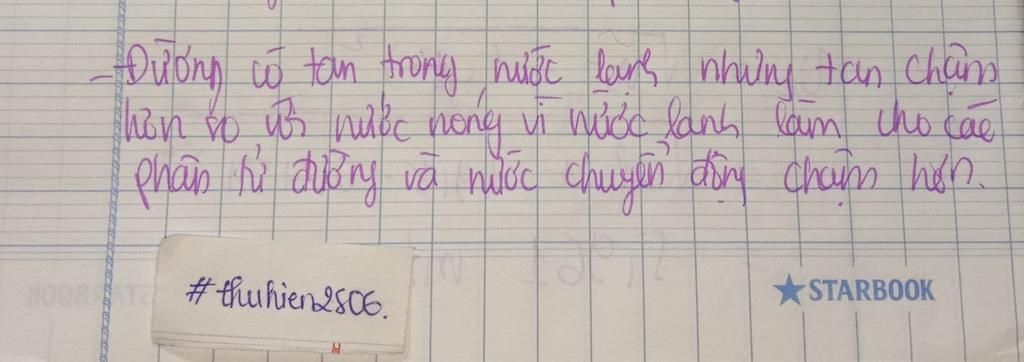 - Đường có tan trong nước lạnh nhưng tan chậm
hơn so với nước nóng vì nước lạnh làm cho các
phân tử đường và nước chuyển động chậm hơn.
#thuhien2806.
STARBOOK